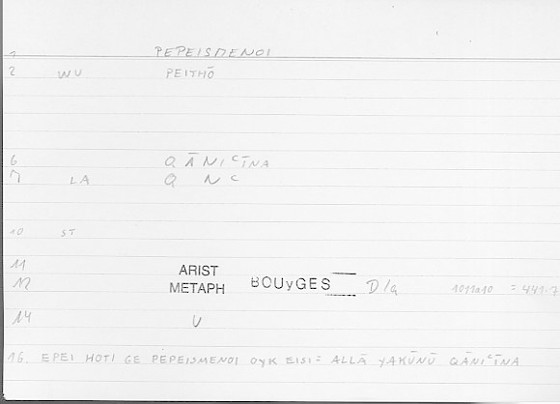 1 PEPEISMENOI
2 WU PEITHŌ
6 QĀNIʿĪNA
7 LA Q N ʿ
10 ST
11 ARIST
12 METAPH BOUyGES D/Q 1011a10 = 441.7
14 V
16. EPEI HOTI GE PEPEISMENOI OYK EISI = ALLĀ YAKŪNŪ QĀNIʿĪNA